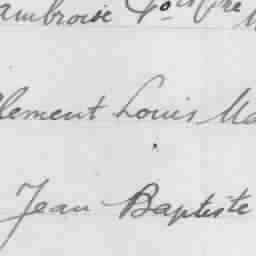 ambroise
Clement Louis Ma
Jean Baptiste